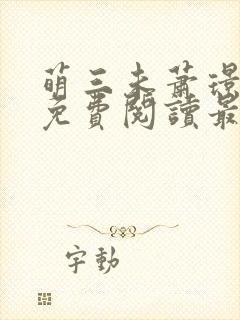 萌三未蕭璟
免費閱讀最
字動